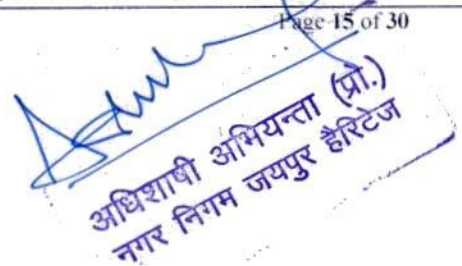 Page 15 of 30
अधिशाषी अभियन्ता (प्रो.)
नगर निगम जयपुर हैरिटेज